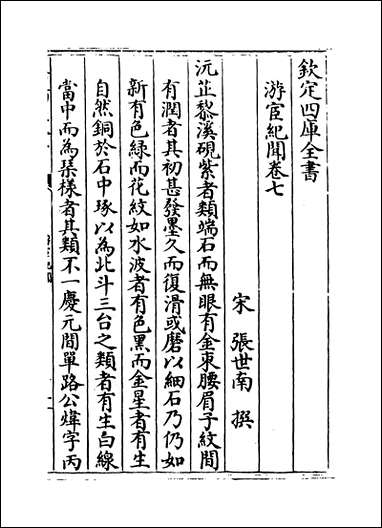 欽定四庫全書
游宦紀聞卷七
宋 張世南 撰
沅芷黎溪硯紫者類端石而無眼有金束腰眉子紋間
有潤者其初甚發墨久而復滑或磨以細石乃仍如
新有色綠而花紋如水波者有色黑而金星者有生
自然銅於石中琢以為北斗三台之類者有生白線
當中而為琹樣者其類不一慶元間單路公煒字丙